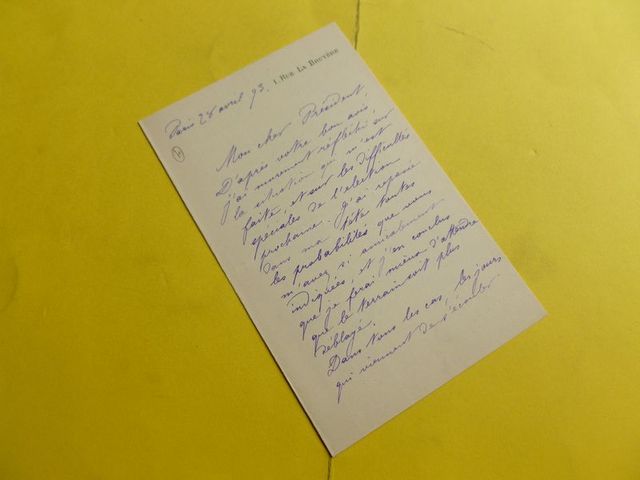 1, RUE LA BRUYÈRE
Paris 28 avril 93.
Mon cher Président,
D'après votre bon avis,
j'ai mûrement réfléchi sur
la situation qui m'est
faite, et sur les difficultés
spéciales de l'élection
prochaine. J'ai repassé
dans ma tête toutes
les probabilités que vous
m'avez si amicalement
indiquées, et j'en conclus
que je ferai mieux d'attendre
que le terrain soit plus
déblayé.
Dans tous les cas, les jours
qui viennent de s'écouler